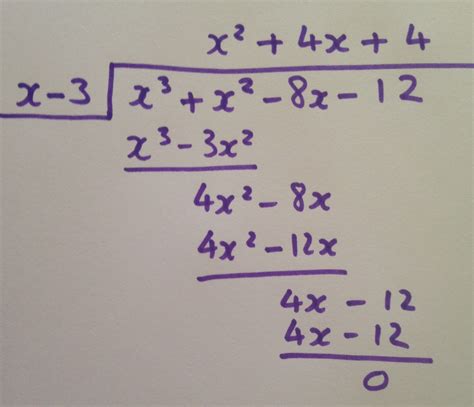 x² + 4x + 4
x - 3 x³ + x² - 8x - 12
x³ - 3x²
4x² - 8x
4x² - 12x
4x - 12
4x - 12
0